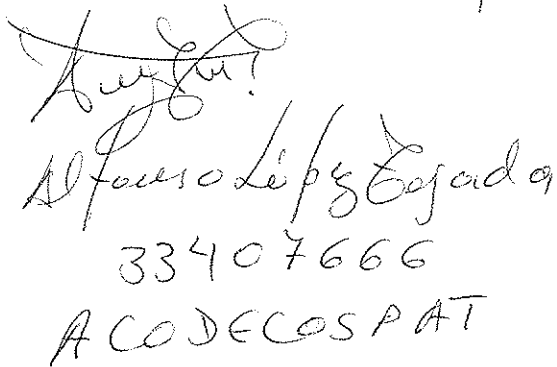 Alfonso López Tejada
33407666
ACODECOSPAT